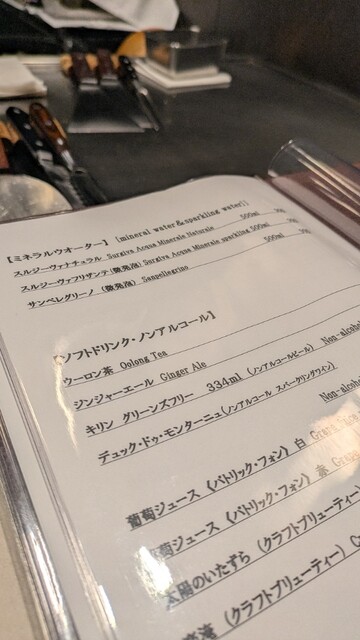 【ミネラルウオーター】 [mineral water&sparkling water]]
スルジーヴァナチュラル Surgiva Acqua Minerale Naturale 500ml
スルジーヴァフリザンテ(微発泡) Surgiva Acqua Minerale sparkling 500ml
サンペレグリーノ (微発泡) Sanpellegrino 500ml
【ソフトドリンク・ノンアルコール】
ウーロン茶 Oolong Tea
ジンジャーエール Ginger Ale
キリン グリーンズフリー 334ml (ノンアルコールビール) Non-alcohol
デュック・ドゥ・モンターニュ(ノンアルコール スパークリングワイン)
Non-alcoh
葡萄ジュース 《パトリック・フォン》 白
葡萄ジュース 《パトリック・フォン》 赤
太陽のいたずら (クラフトブリューティー)
(クラフトブリューティー)